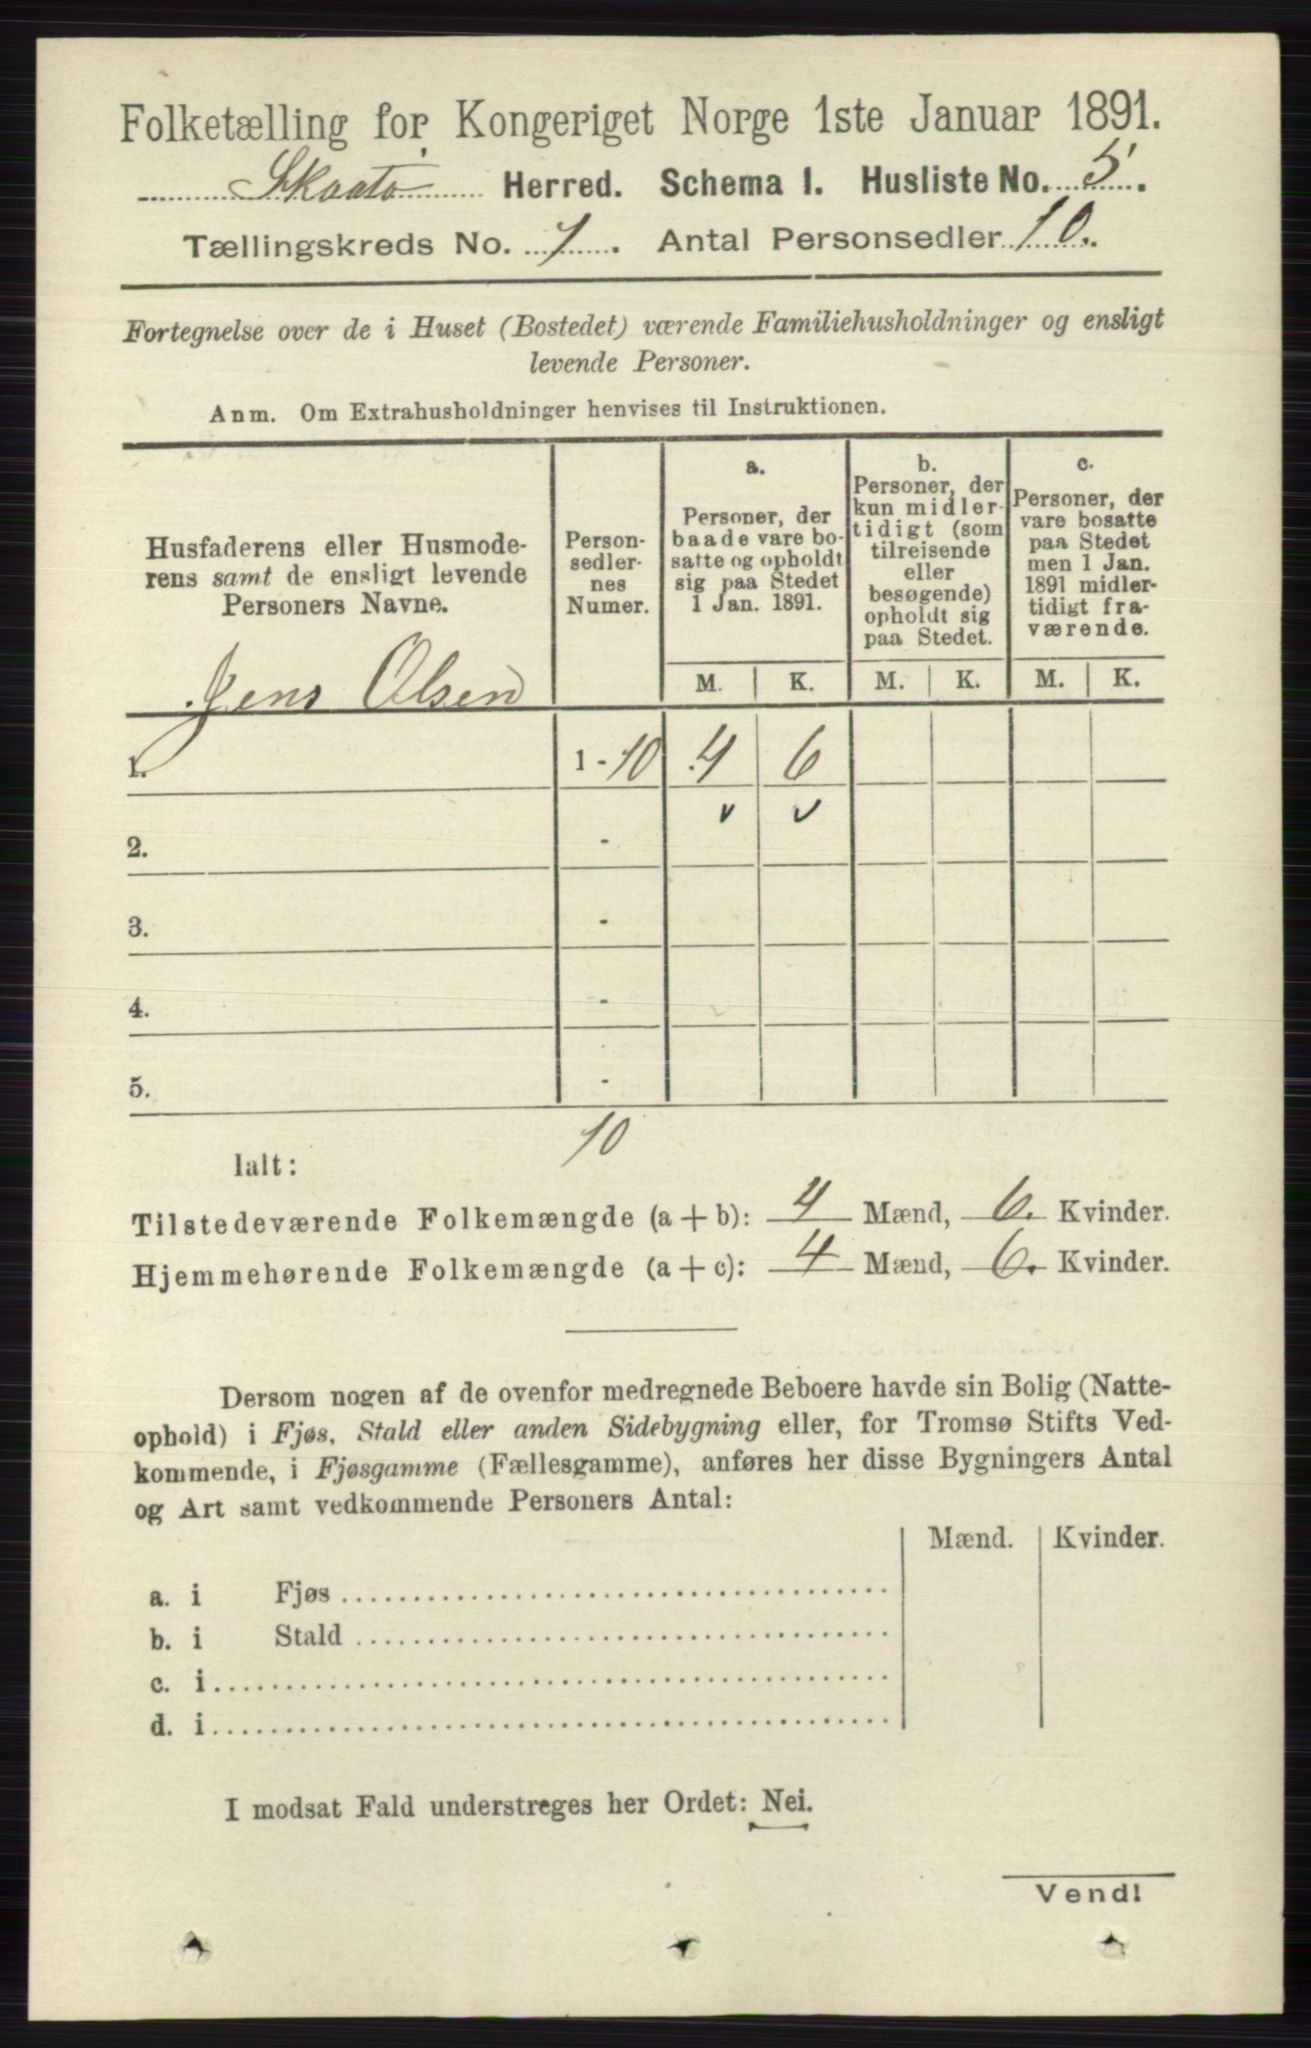 Folketælling for Kongeriget Norge 1ste Januar 1891.
Skaatø Herred. Schema I. Husliste No. 5.
Tællingskreds No. 1. Antal Personsedler 10.
Fortegnelse over de i Huset (Bostedet) værende Familiehusholdninger og ensligt
levende Personer.
Anm. Om Extrahusholdninger henvises til Instruktionen.
Husfaderens eller Husmode-
rens samt de ensligt levende
Personers Navne.
Person-
sedler-
nes
Numer.
a.
Personer, der
baade vare bo-
satte og opholdt
sig paa Stedet
1 Jan. 1891.
b.
Personer, der
kun midler-
tidigt (som
tilreisende
eller
besøgende)
opholdt sig
paa Stedet.
c.
Personer, der
vare bosatte
paa Stedet
men 1 Jan.
1891 midler-
tidigt fra-
værende.
M. K. M. K. M. K.
Jens Olsen
1. 1 - 10 4 6
2. -
3. -
4. -
5. -
10
Ialt:
Tilstedeværende Folkemængde (a + b): 4 Mænd, 6. Kvinder.
Hjemmehørende Folkemængde (a + c): 4 Mænd, 6. Kvinder.
Dersom nogen af de ovenfor medregnede Beboere havde sin Bolig (Natte-
ophold) i Fjøs, Stald eller anden Sidebygning eller, for Tromsø Stifts Ved-
kommende, i Fjøsgamme (Fællesgamme), anføres her disse Bygningers Antal
og Art samt vedkommende Personers Antal:
Mænd. Kvinder.
a. i Fjøs
b. i Stald
c. i
d. i
I modsat Fald understreges her Ordet: Nei.
Vend!